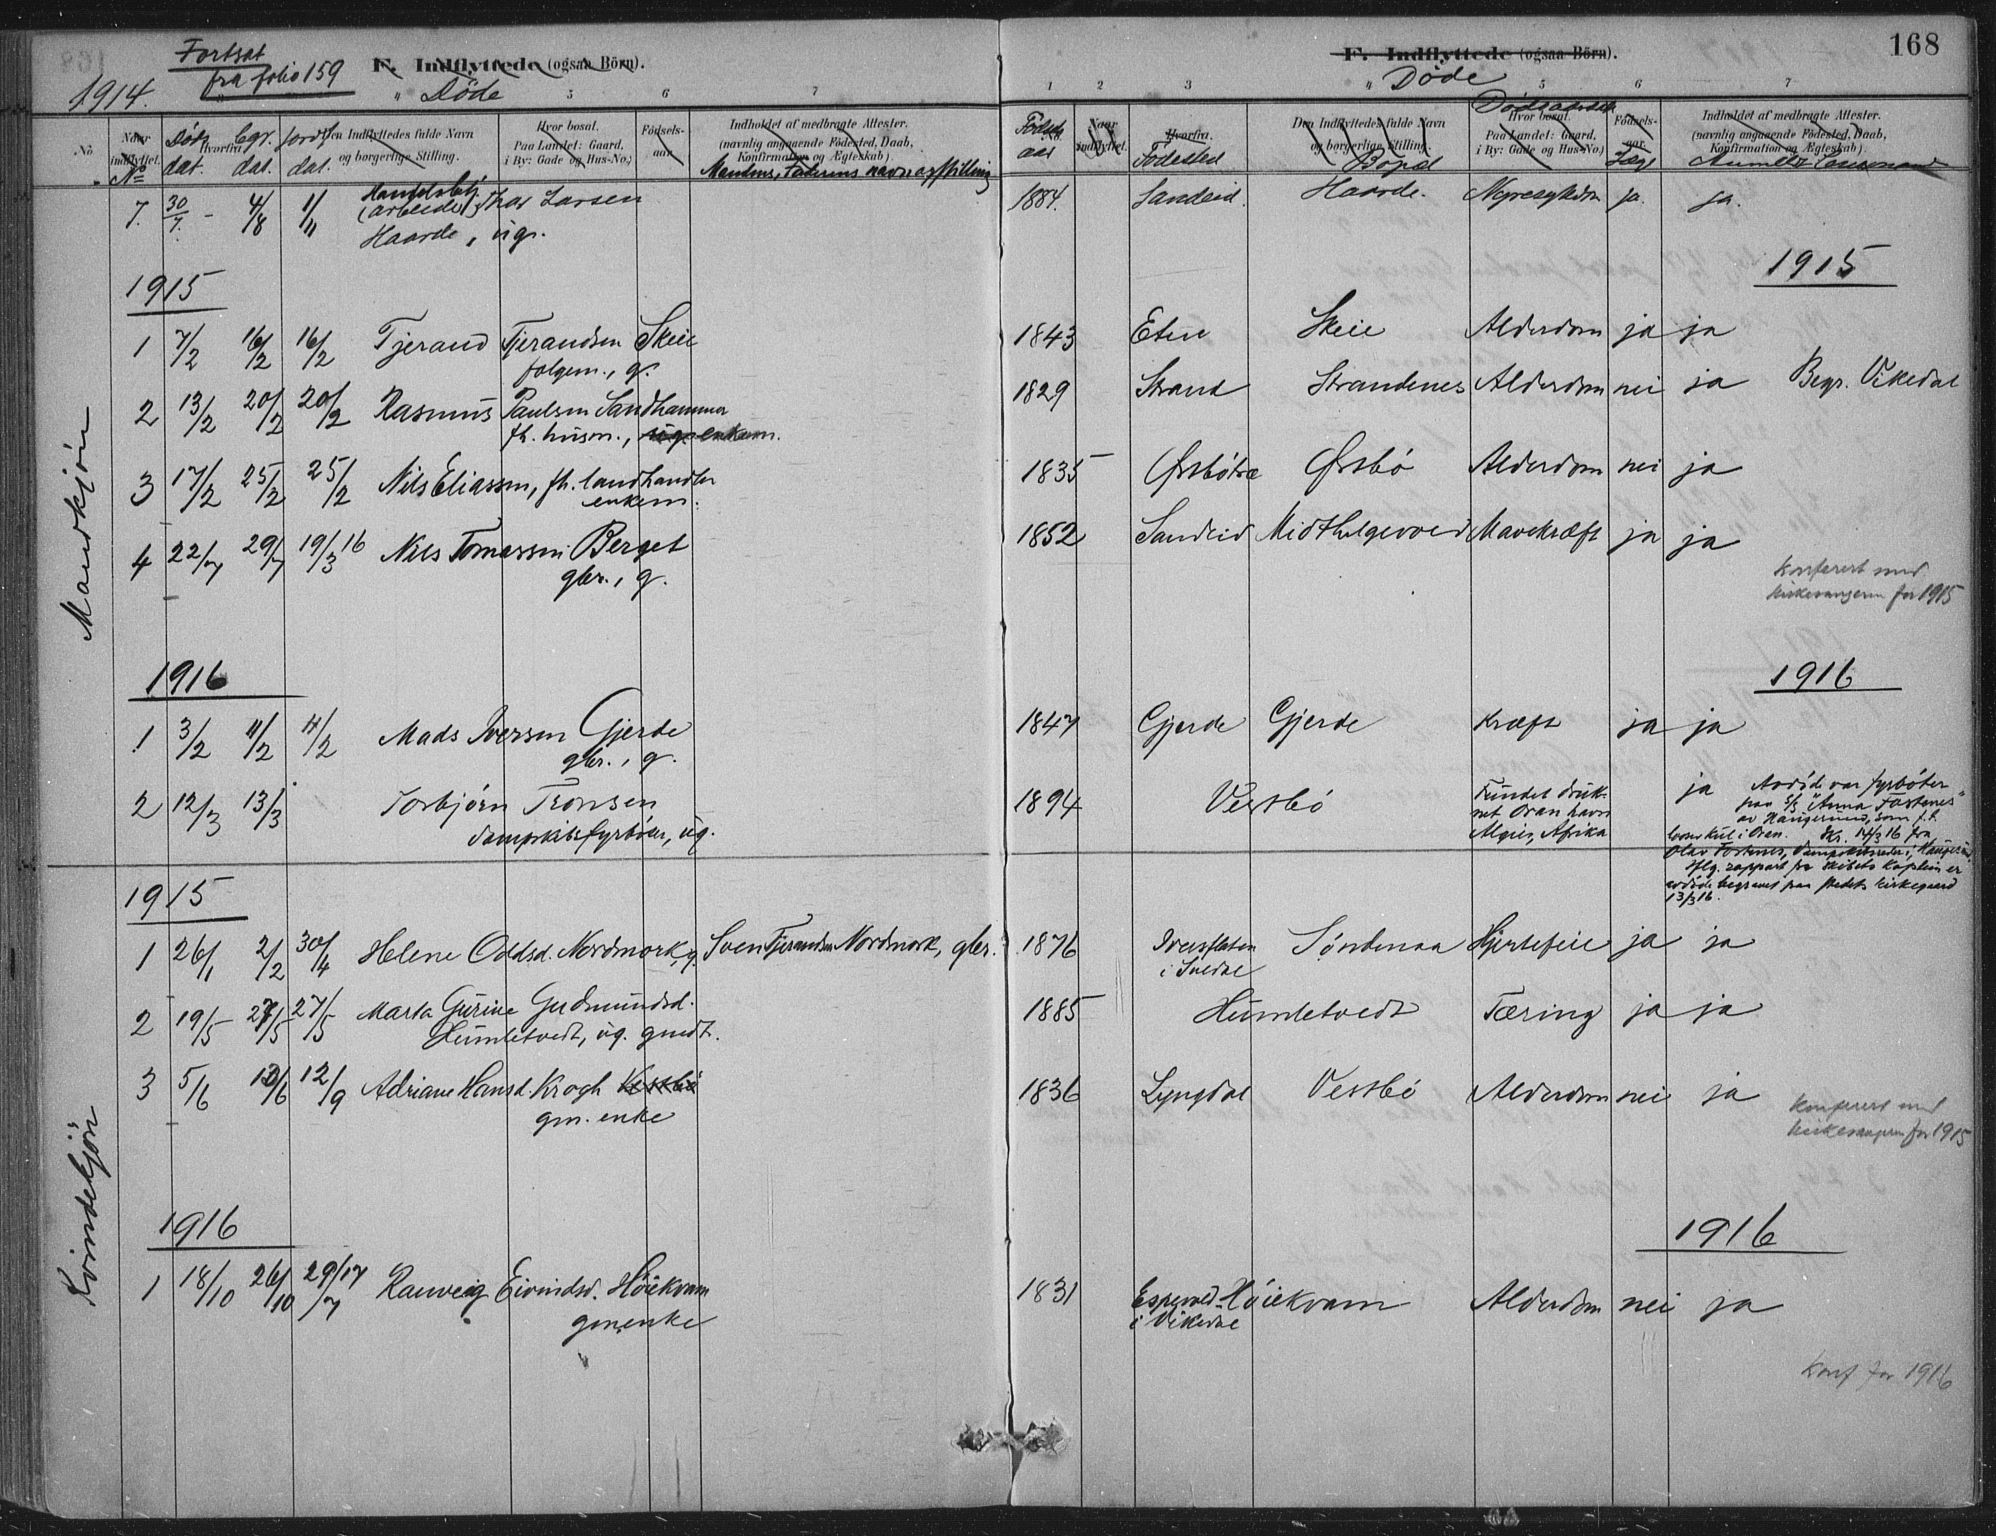 168
Fortsat
fra folio 159
1914.
F. Indflyttede (ogsaa Börn).
" Døde
5 6 7
No.
Naar indflyttet.
No
Døds dat.
Hvorfra.
begr. dat.
Jordf. dat.
Den Indflyttedes fulde Navn og borgerlige Stilling.
Hvor bosat. Paa Landet: Gaard, i By: Gade og Hus-No.)
Födsels-aar.
Indholdet af medbragte Attester. (navnlig angaaende Födested, Daab, Konfirmation og Ægteskab).
Mandens, Faderens navn og stilling
F. Indflyttede (ogsaa Börn).
" Døde
1 2 3 5 6 7
Fødsels aar
Naar indflyttet.
Hvorfra.
Fødested
Den Indflyttedes fulde Navn og borgerlige Stilling.
Bopæl
Dødsaarsak
Hvor bosat. Paa Landet: Gaard, i By: Gade og Hus-No.)
Födsels-aar.
Læge
Indholdet af medbragte Attester. (navnlig angaaende Födested, Daab, Konfirmation og Ægteskab).
Mandkjøn
7. 30/7. - 4/8 1/11 Handelsbetj. (arbeider) Larsen
Haarde, ug.
1884. Sandeid. Haarde. Nyresykdom ja. ja.
1915
1915
1 7/2 16/2 16/2 Tjerand Tjerandsen Skeie
folgem., g.
1843 Etne Skeie Alderdom ja ja
2 13/2 20/2 20/2 Rasmus Paulsen Sandhammer
fh. husm., ug. enkem.
1829 Strand Strandenes Alderdom nei ja Begr. Vikedal
3 17/2 25/2 25/2 Nils Eliassen, fh. landhandler
enkem.
1835 Ørsbø Alderdom nei ja
4 22/7 29/7 19/3 16 Nils Tomassen Berget
gbr., g.
1852 Sandeid Midthelgevold Mavekræft ja ja
Konferert med
kirkesangeren for 1915
1916
1916
1 3/2 11/2 11/2 Mads Iversen Gjerde
gbr., g.
1847 Gjerde Gjerde Kræft ja ja
2 12/3 13/3 Torbjørn Tronsen
dampskibsfyrbøter, ug.
1894 Vestbø Fundet druk-
net Oran havn
Algier, Afrika
ja Avdøde var fyrbøter
paa S/S "Anna Fostenes"
av Haugesund, som f.t.
losser kul i Oran. Skr. 14/3 16 fra
Olav Fostenes, Dampskibsreder i Haugesund.
Iflg. rapport fra skibets kaptein er
avdøde begravet paa stedets kirkegaard
13/3 16.
Kvindekjøn
1915
1 26/1 2/2 30/4 Helene Oddsd. Nordmork, g. Sven Tjerandsen Nordmork, gbr.
1876 i Suldal Søndenaa Hjertefeil ja ja
2 19/5 27/5 27/5 Marta Gurine Gudmundsd.
Humletvedt, ug. gmdt.
1885 Humletvedt Tæring ja ja
3 5/6 12/6 12/9 Adriane Hansd. Krogh Vestbø
gm. enke
1836 Lyngdal Vestbø Alderdom nei ja
Konferert med
kirkesangeren for 1915
1916
1916
1 18/10 26/10 29/7 17 Ranveig Eivindsd. Høiekvam
gm. enke
1831 Espevold i Vikedal Høiekvam Alderdom nei ja
Konf for 1916